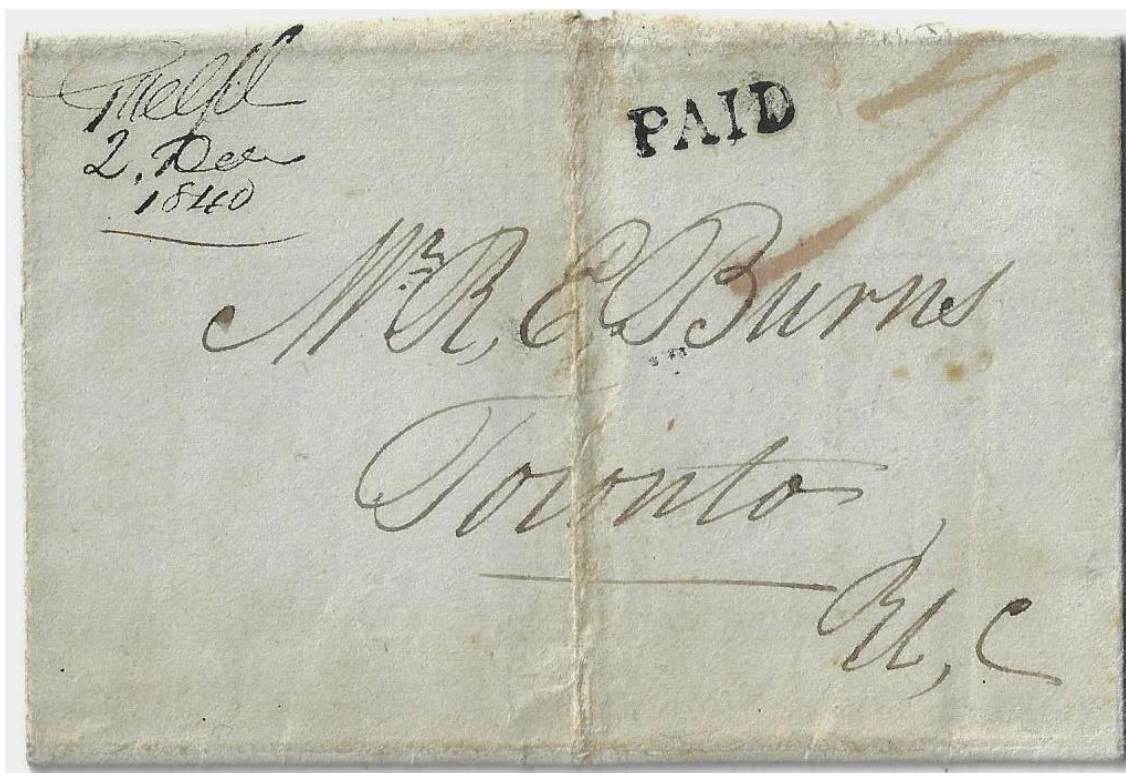 Guelph
2. Decr
1840
PAID
7
Mr. R, E, Burns
Toronto
U, C